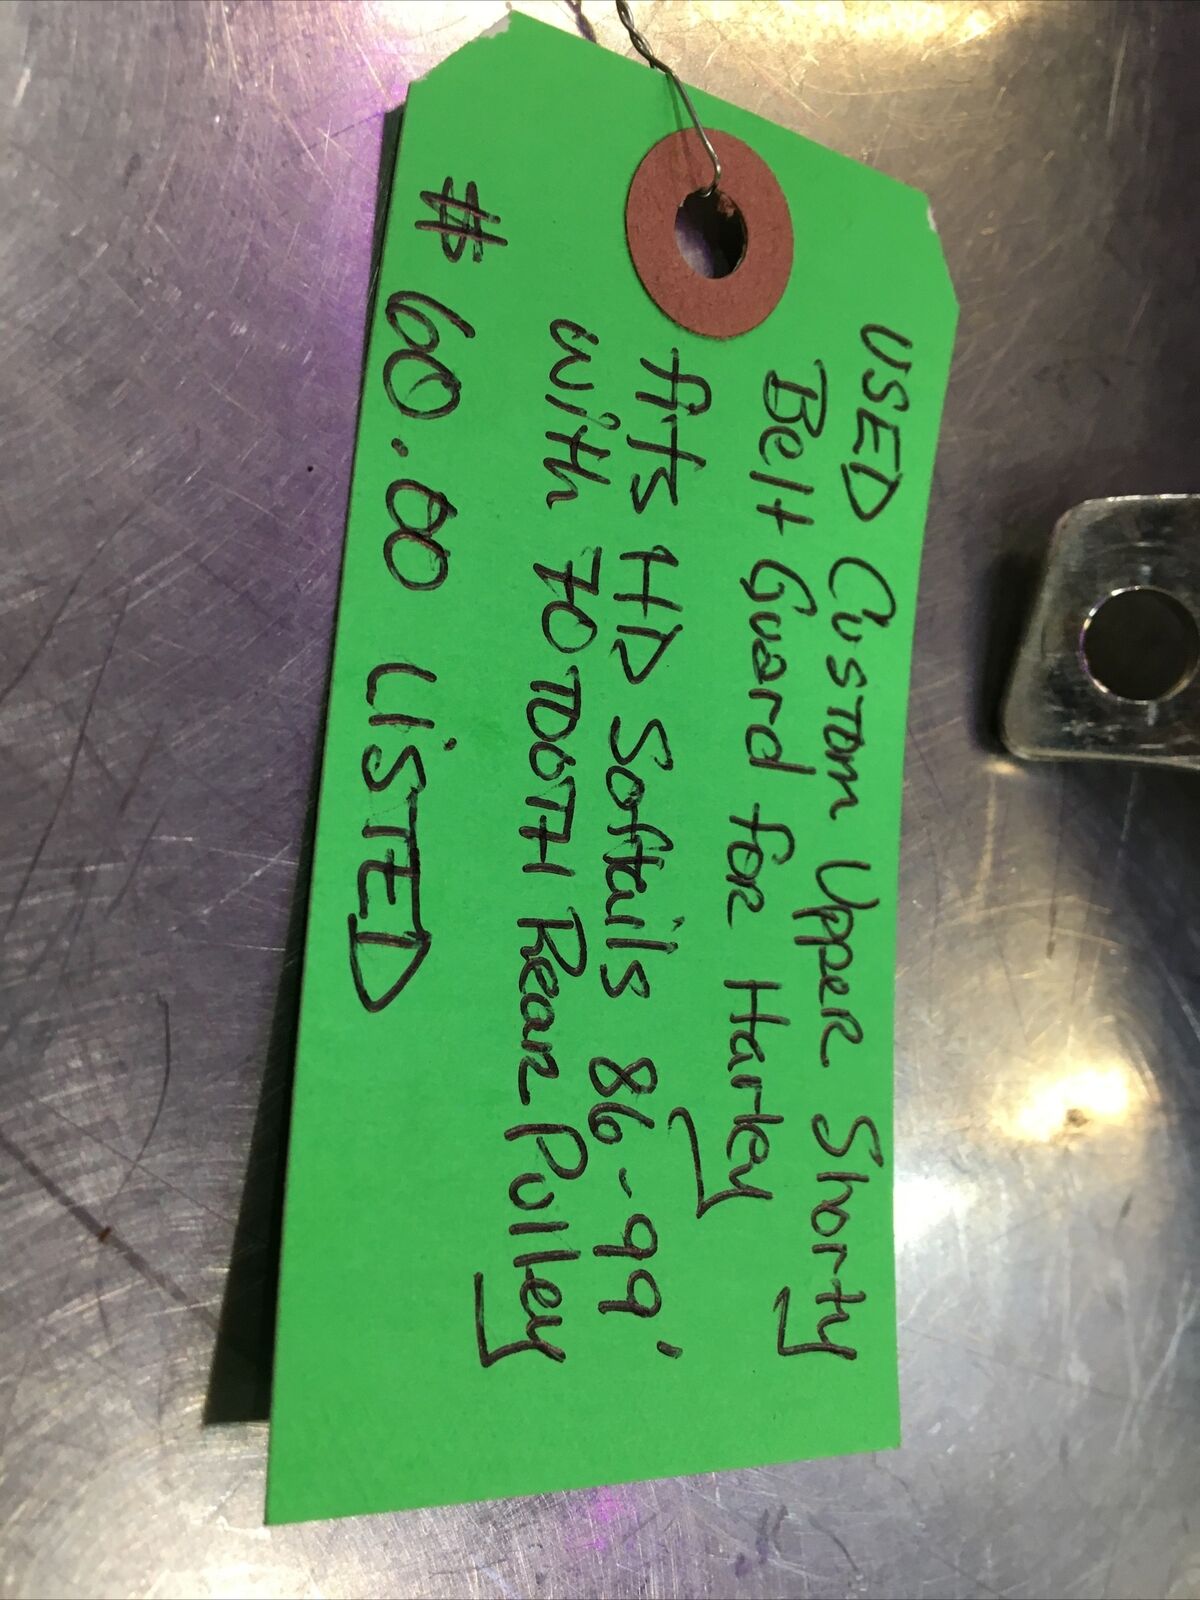 USED Custom Upper Shorty
Belt Guard for Harley
fits HD Softails 86-99'
with 70 TOOTH Rear Pulley
$60.00 LiSTED